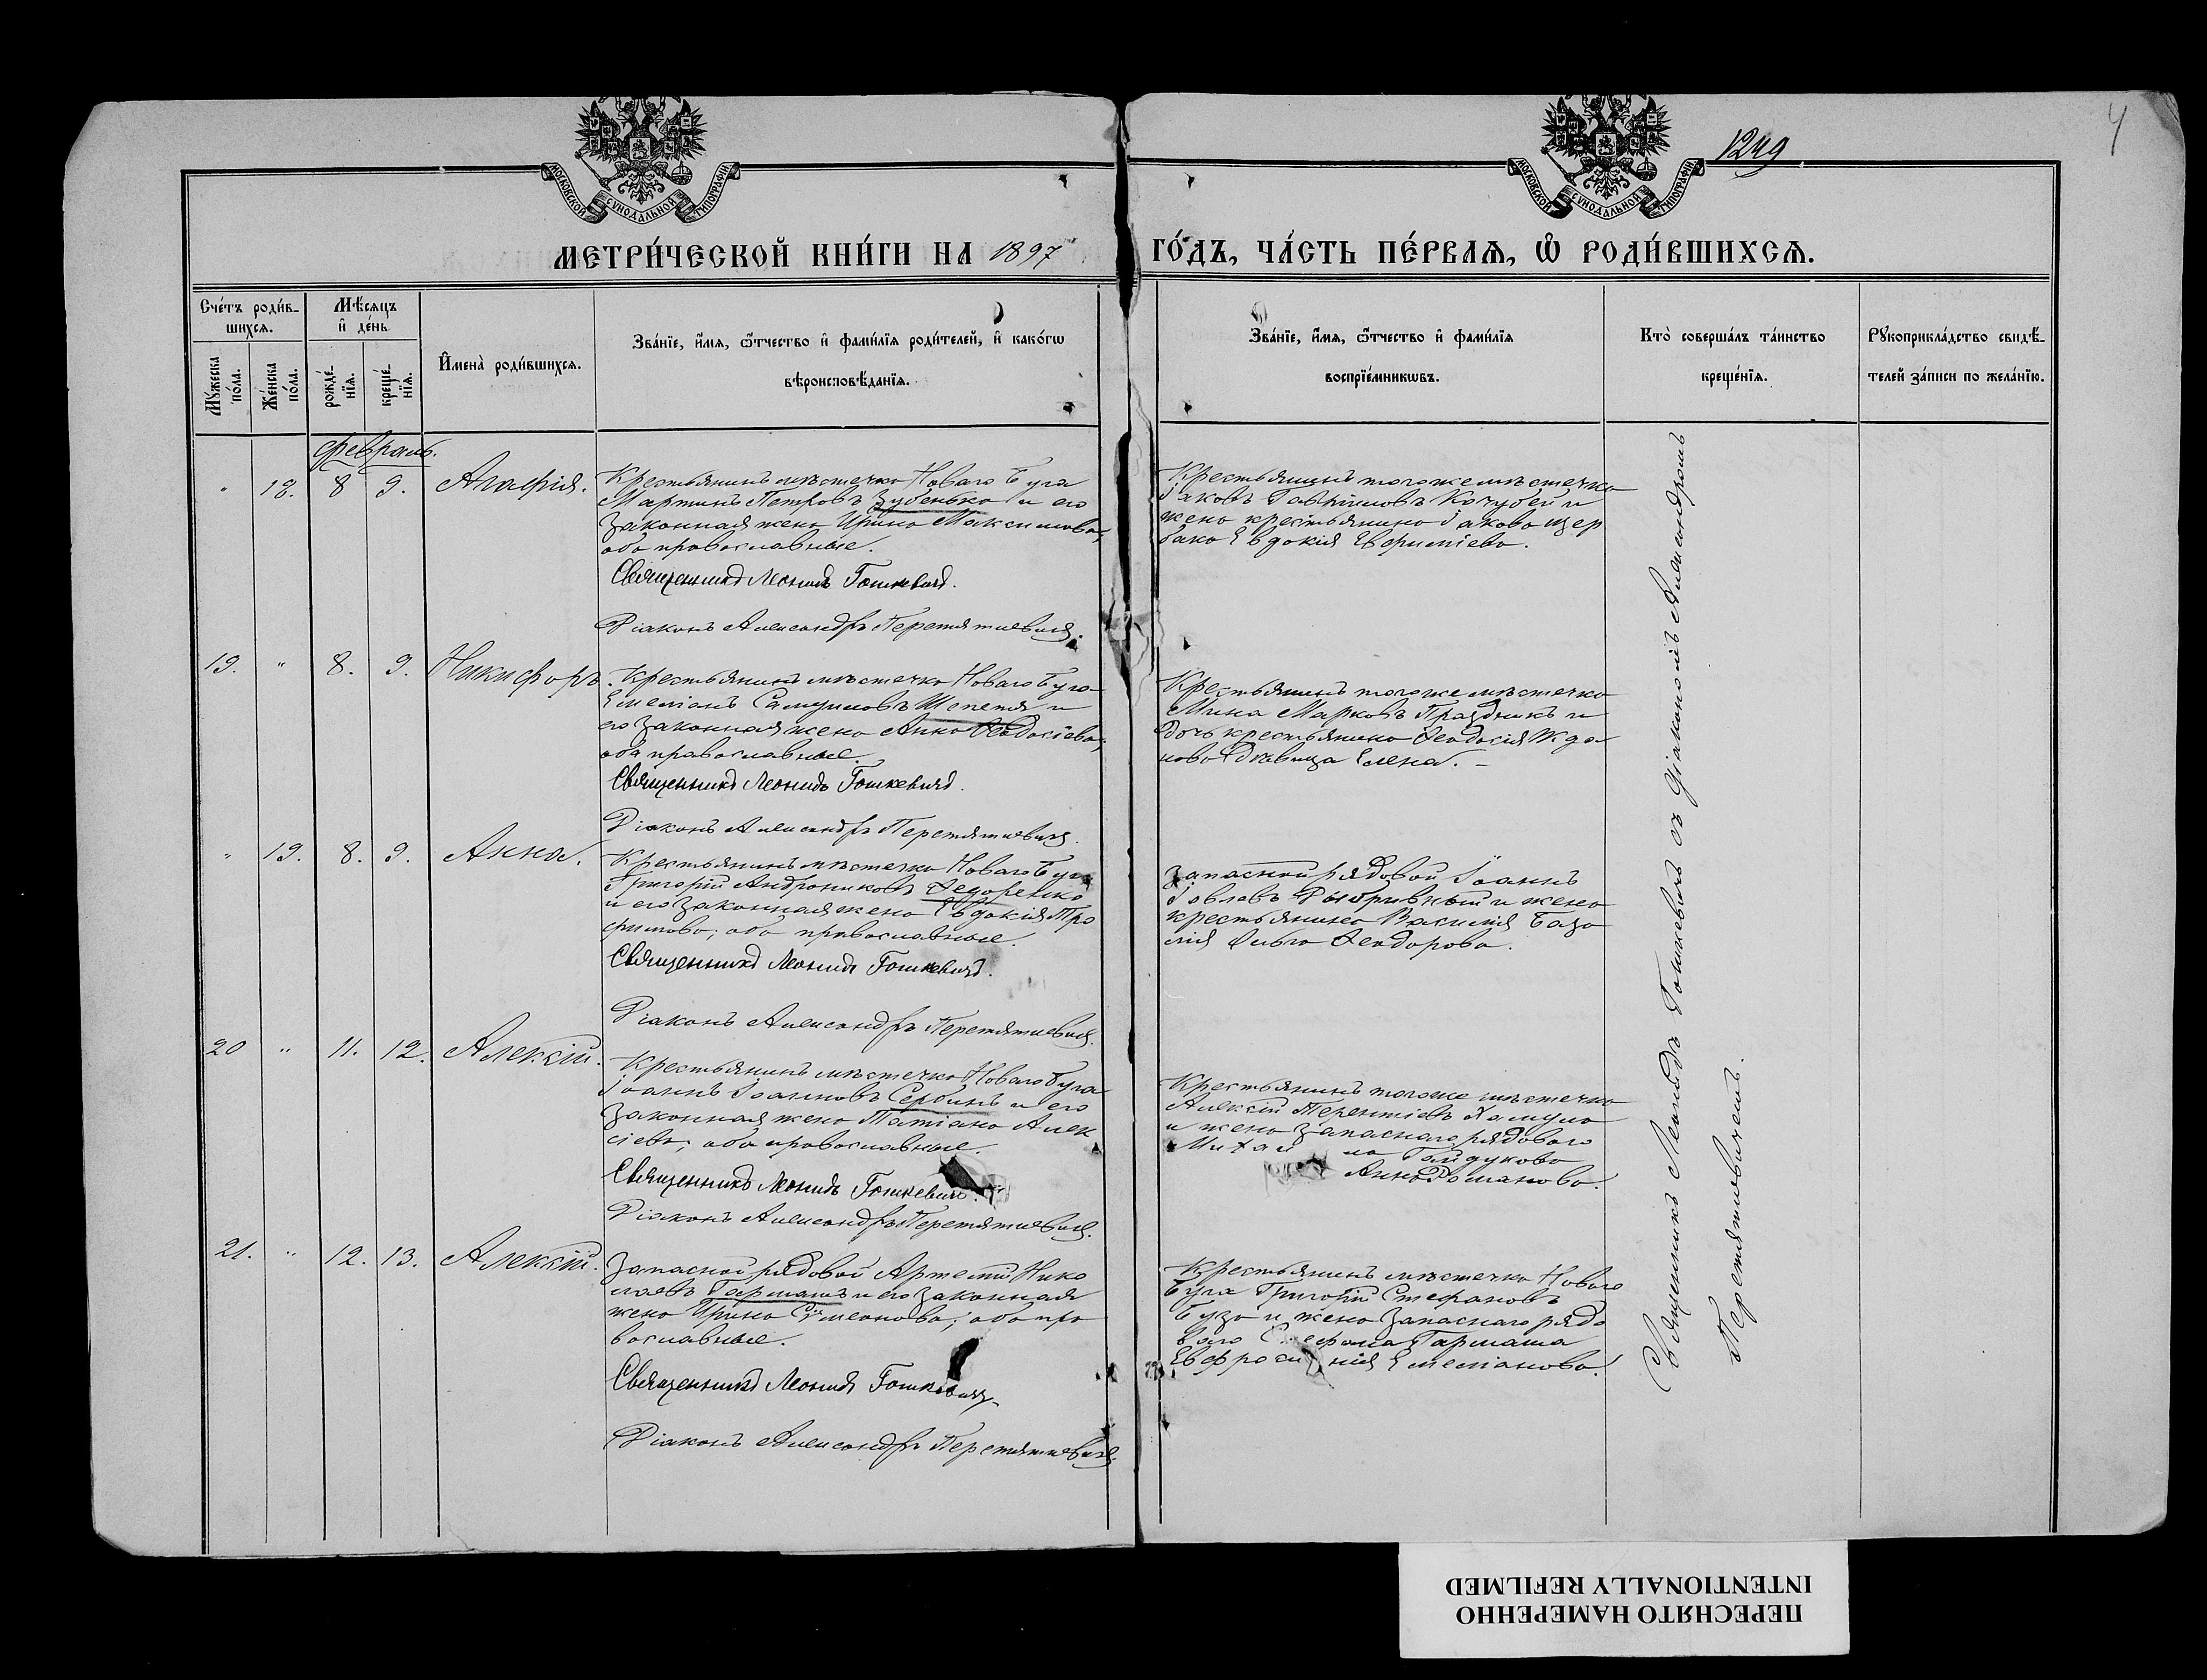 1249
4
МОСКОВСКОЙ СѴНОДАЛЬНОЙ ТИПОГРАФІИ
МОСКОВСКОЙ СѴНОДАЛЬНОЙ ТИПОГРАФІИ
МЕТРИ́ЧЕСКОЙ КНИ́ГИ НА 1897 ГО́ДЪ, ЧА́СТЬ ПЕ́РВАѦ, Ѡ҆ РОДИ́ВШИХСѦ.
Сче́тъ роди́в-
шихсѧ.
Мꙋ́жеска
по́ла.
Же́нска
по́ла.
Мѣ́сѧцъ
и҆ де́нь
рожде́-
нїѧ.
креще́-
нїѧ.
И҆мена̀ роди́вшихсѧ.
Зва́нїе, и҆́мѧ, ѻ҆́тчество и҆ фами́лїѧ роди́телей, и҆ како́гѡ
вѣроисповѣ́данїѧ.
Зва́нїе, и҆́мѧ, ѻ҆́тчество и҆ фами́лїѧ
воспрїе́мникѡвъ.
Кто̀ соверша́лъ та́инство
креще́нїѧ.
Рꙋкоприкла́дство свидѣ́-
телей за́писи по жела́нїю.
Февраль.
" 18. 8 9. Агафія.
Крестьянинъ мѣстечка Новаго Буга
Мартинъ Петровъ Зубенько и его
законная жена Ирина Максимова,
оба православные.
Священникъ Леонидъ Гошкевичъ.
Діаконъ Александръ Перетяткевичъ.
Крестьянинъ того же мѣстечка
Іаковъ Гавріиловъ Кочубей и
жена крестьянина Іакова Щер
бака Евдокія Евфиміева.
19. " 8. 9. Никифоръ.
Крестьянинъ мѣстечка Новаго Буга
Емеліанъ Самуиловъ Шепетя и
его законная жена Анна Ѳеодосіева,
оба православные.
Священникъ Леонидъ Гошкевичъ.
Діаконъ Александръ Перетяткевичъ.
Крестьянинъ того же мѣстечка
Мина Марковъ Праздникъ и
дочь крестьянина Ѳеодосія Жда
нова дѣвица Елена. –
" 19. 8. 9. Анна.
Крестьянинъ мѣстечка Новаго Буга
Григорій Андрониковъ Ѳедоренко
и его законная жена Евдокія Тро
фимова; оба православные.
Священникъ Леонидъ Гошкевичъ.
Діаконъ Александръ Перетяткевичъ.
Запасной рядовой Іоаннъ
и жена
крестьянина Василія База
лія Ольга Ѳеодорова.
20 " 11. 12. Алексій.
Крестьянинъ мѣстечка Новаго Буга
Іоаннъ Іоанновъ Сербинъ и его
законная жена Татіана Алек
сіева; оба православные.
Священникъ Леонидъ Гошкевичъ.
Діаконъ Александръ Перетяткевичъ.
Крестьянинъ того же мѣстечка
Алексій Терентіевъ Хамула
и жена запаснаго рядоваго
Михаила Гайдукова
Анна Романова.
21. " 12. 13. Алексій.
Запасной рядовой Артемій Нико
лаевъ Гармашъ и его законная
жена Ирина Сѵмеонова; оба пра
вославные.
Священникъ Леонидъ Гошкевичъ.
Діаконъ Александръ Перетяткевичъ.
Крестьянинъ мѣстечка Новаго
Буга Григорій Стефановъ
Буза и жена запаснаго рядо
ваго Стефана Гармаша
Евфросинія Емеліанова.
Священникъ Леонидъ Гошкевичъ съ діакономъ Александромъ
Перетятковичемъ.
ПЕРЕСНЯТО НАМЕРЕННО
INTENTIONALLY REFILMED